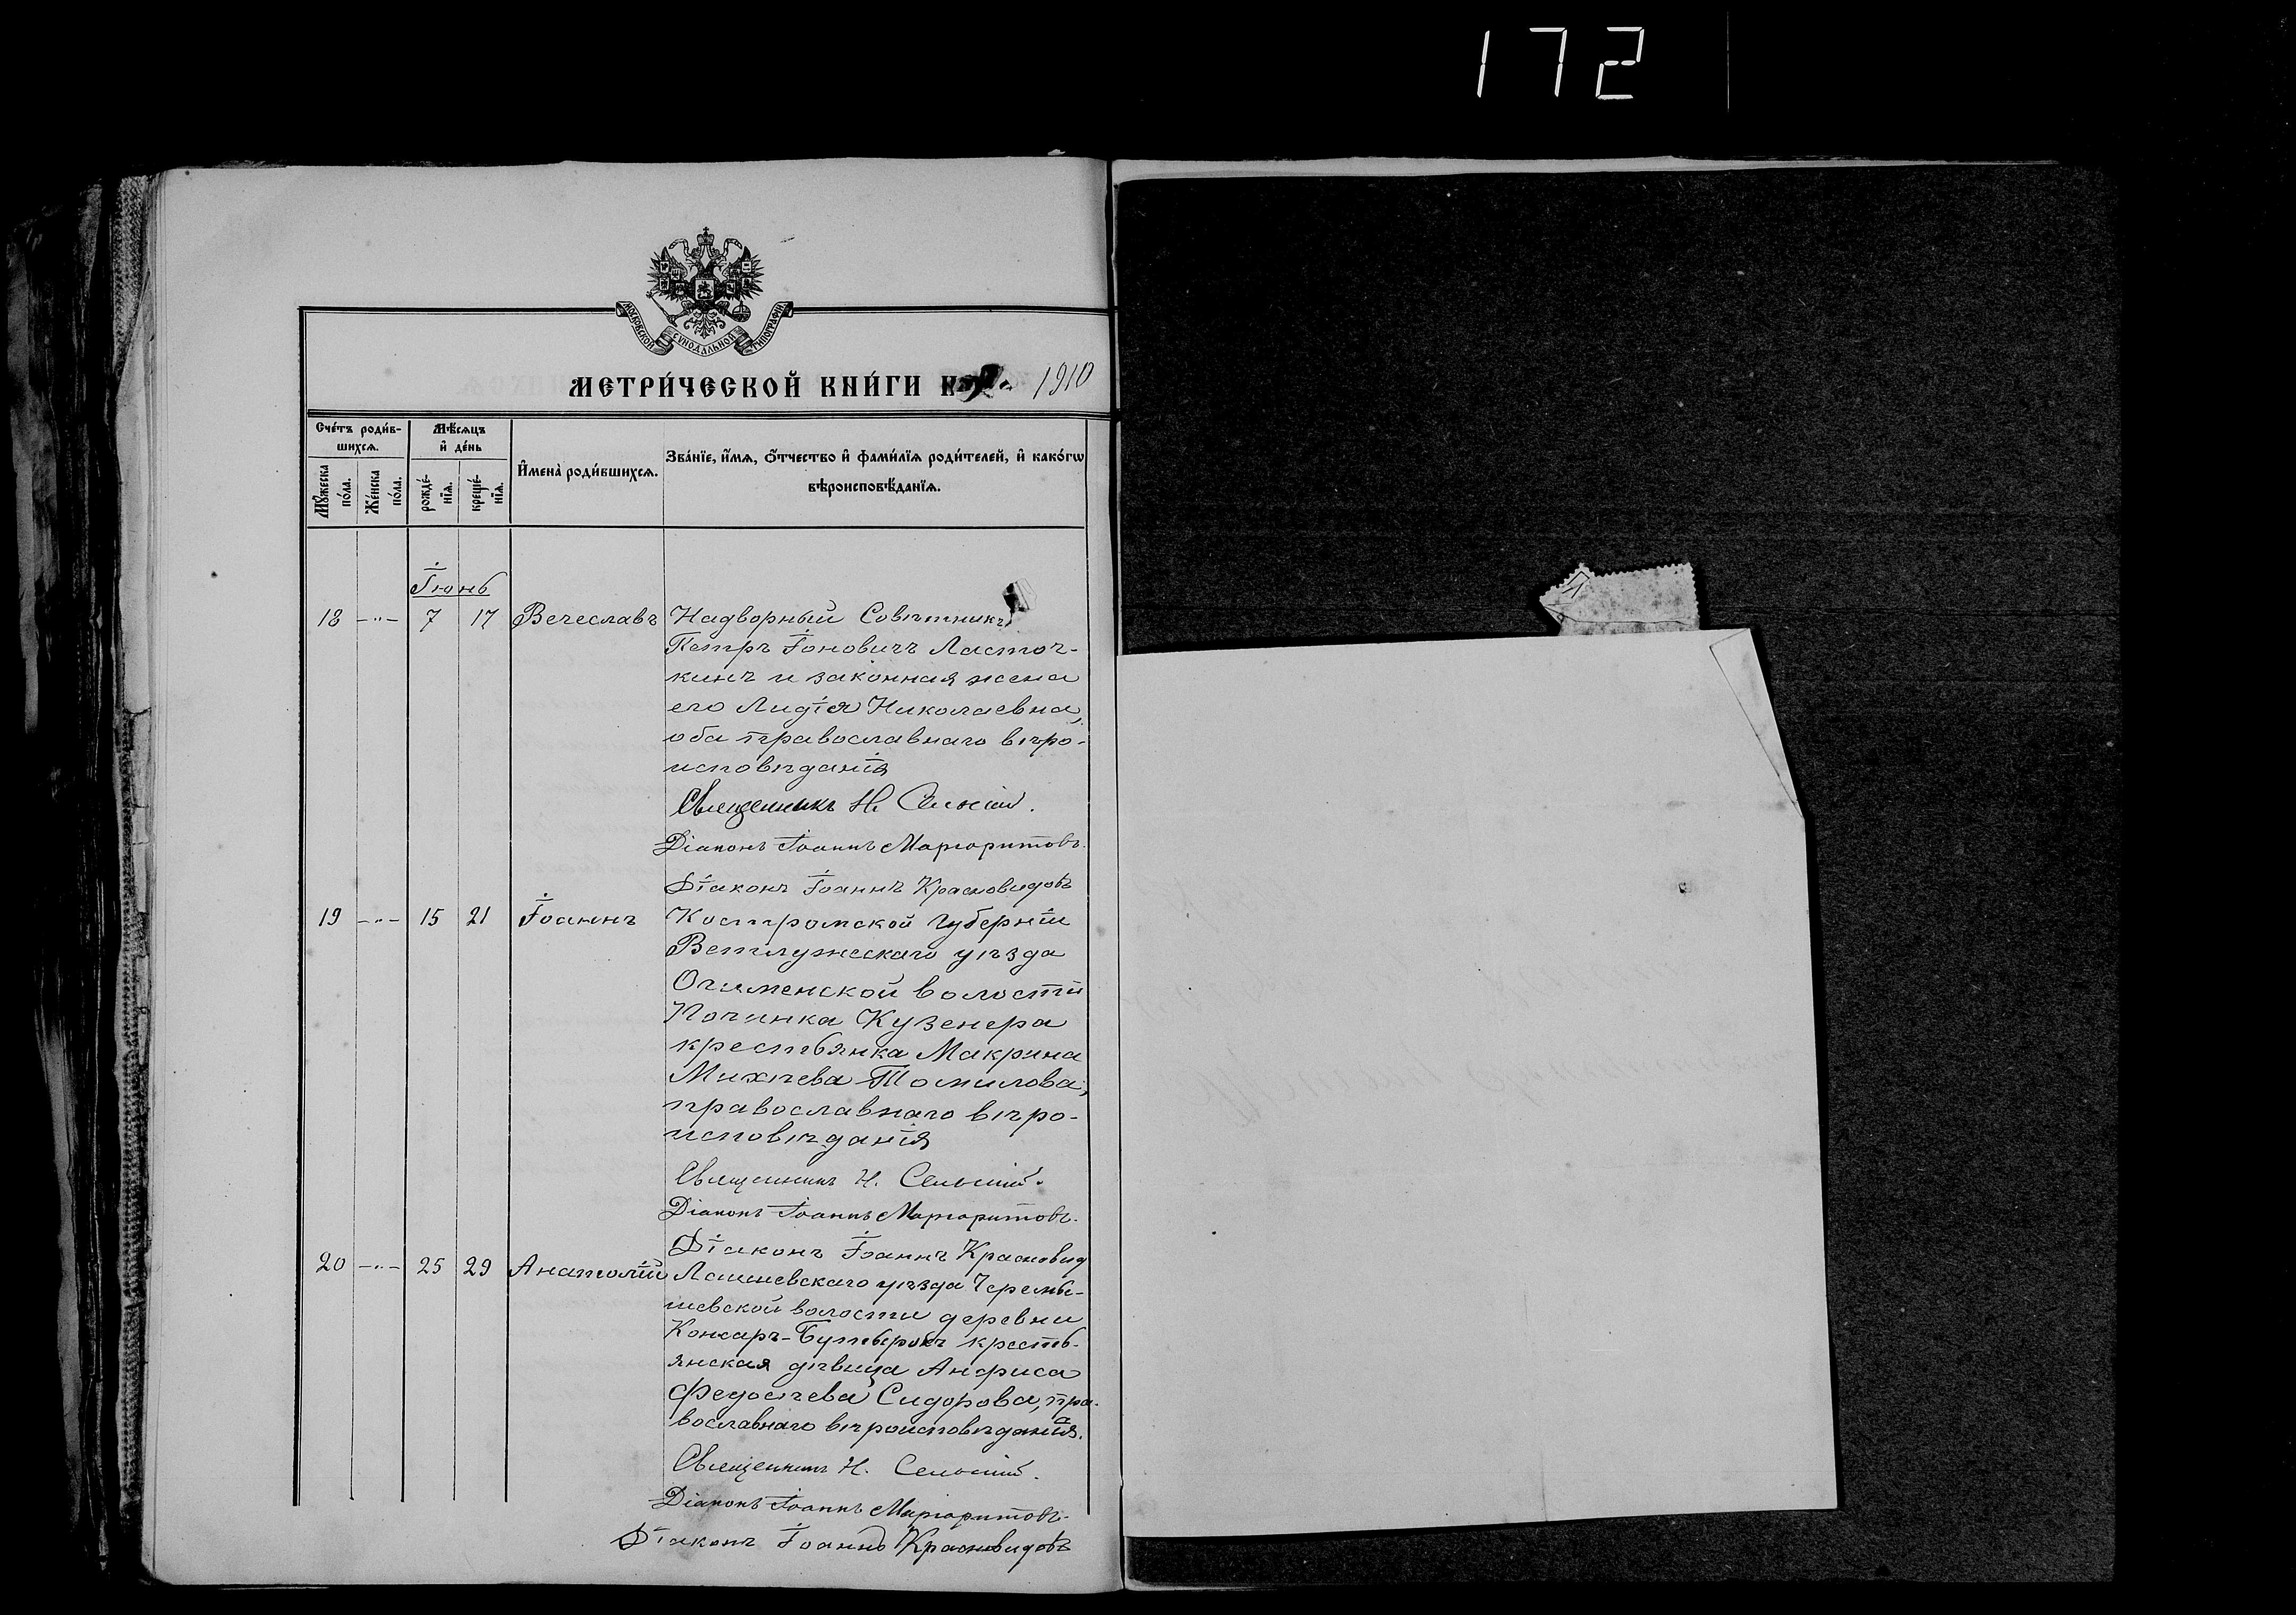 172
МОСКОВСКОЙ СѴНОДАЛЬНОЙ ТИПОГРАФІИ
МЕТРИ́ЧЕСКОЙ КНИ́ГИ 1910
Сче́тъ роди́в-
шихсѧ.
Мѣ́сѧцъ
и҆ де́нь
И҆мена̀ роди́вшихсѧ.
Зва́нїе, и҆́мѧ, ѻ҆́тчество и҆ фами́лїѧ роди́телей, и҆ како́гѡ
вѣроисповѣ́данїѧ.
Мꙋ́жеска
по́ла.
Же́нска
по́ла.
рожде́-
нїѧ.
креще́-
нїѧ.
Іюнь
18 -"- 7 17 Вечеславъ Надворный Совѣтникъ
Петръ Іоновичъ Ласточ-
кинъ и законная жена
его Лидія Николаевна,
оба православнаго вѣро-
исповѣданія
Священникъ Н.
Діаконъ Іоаннъ Маргаритовъ.
Діаконъ Іоаннъ Красновидовъ
19 -"- 15 21 Іоаннъ Костромской губерніи
Ветлужескаго уѣзда
волости
Починка Кузенера
крестьянка Макрина
Михѣева Томилова,
православнаго вѣро-
исповѣданія
Священникъ Н. Сельскій.
Діаконъ Іоаннъ Маргаритовъ.
Діаконъ Іоаннъ Красновид
20 -"- 25 29 Анатолій Лаишевскаго уѣзда Черемы-
шевской волости деревни
крестья-
янская дѣвица Анфиса
Федосѣева Сидорова, пра-
вославнаго вѣроисповѣданія.
Священникъ Н. Сельскій.
Діаконъ Іоаннъ Маргаритовъ.
Діаконъ Іоаннъ Красновидовъ